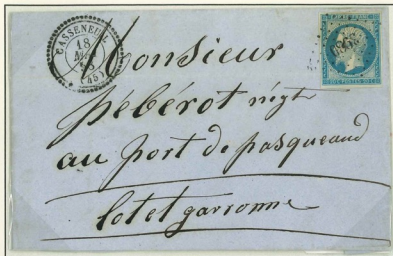 CASSENEUIL
18
(45)
Monsieur
pébérot négt
au port de pasqueaud
lot et garronne